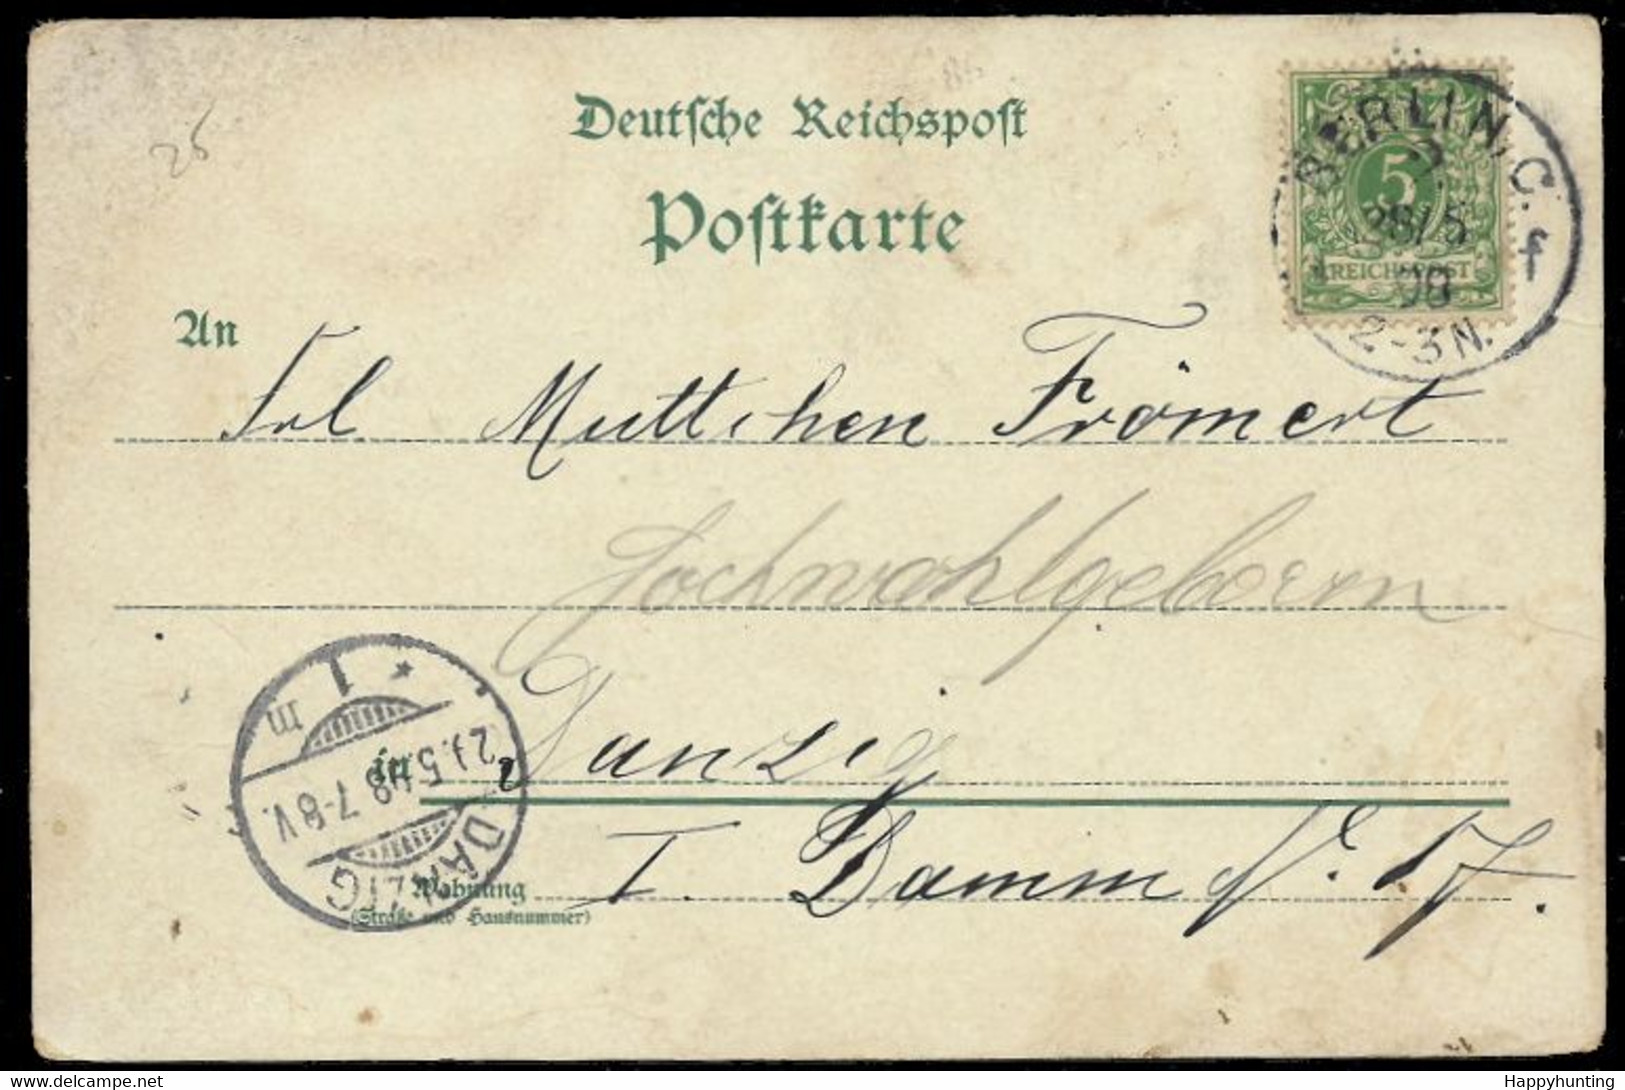 25
Deutsche Reichspost
Postkarte
BERLIN, C.
2
28/5
98
2-3N.
5
REICHSPOST
An
Frl Muttchen Frömert
Hochwohlgeboren
in Danzig
I. Damm No. 17.
Wohnung
(Straße und Hausnummer)
DANZIG
5.98 7-8V.
* 1
m
Happyhunting